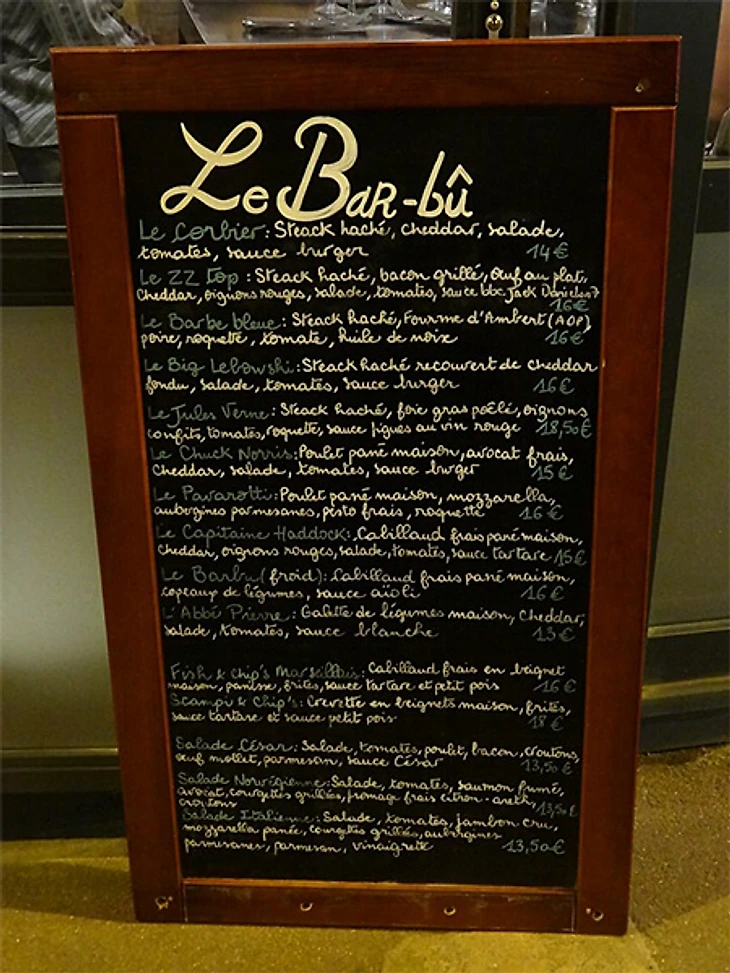 Le Bar-bû
Le Corbier: Steack haché, cheddar, salade,
tomates, sauce burger 14€
Le ZZ top: Steack haché, bacon grillé, Œuf au plat,
cheddar, oignons rouges, salade, tomates, sauce bbc Jack Daniel's n°7
16€
Le Barbe bleue: Steack haché, Fourme d'Ambert (AOP),
poire, roquette, tomate, huile de noix 16€
Le Big Lebowski: Steack haché recouvert de cheddar
fondu, salade, tomates, sauce burger 16€
Le Jules Verne: Steack haché, foie gras poêlé, oignons
confits, tomates, roquette, sauce figues au vin rouge 18,50€
Le Chuck Norris: Poulet pané maison, avocat frais,
cheddar, salade, tomates, sauce burger 15€
Le Pavarotti: Poulet pané maison, mozzarella,
aubergines parmesanes, pesto frais, roquette 16€
Le Capitaine Haddock: Cabillaud frais pané maison,
cheddar, oignons rouges, salade, tomates, sauce tartare 15€
Le Barbu (froid): Cabillaud frais pané maison,
copeaux de légumes, sauce aïoli 16€
L'Abbé Pierre: Galette de légumes maison, cheddar,
salade, tomates, sauce blanche 13€
Fish & chip's Marseillais: Cabillaud frais en beignet
maison, panisse, frites, sauce tartare et petit pois 16€
Scampi & Chip's: Crevette en beignets maison, frites,
sauce tartare et sauce petit pois 18€
Salade César: Salade, tomates, poulet, bacon, croutons,
œuf mollet, parmesan, sauce César 13,50€
Salade Norvégienne: Salade, tomates, saumon fumé,
avocat, courgettes grillées, fromage frais citron-aneth,
croutons 13,50€
Salade Italienne: Salade, tomates, jambon cru,
mozzarella panée, courgettes grillées, aubergines
parmesanes, parmesan, vinaigrette 13,50€